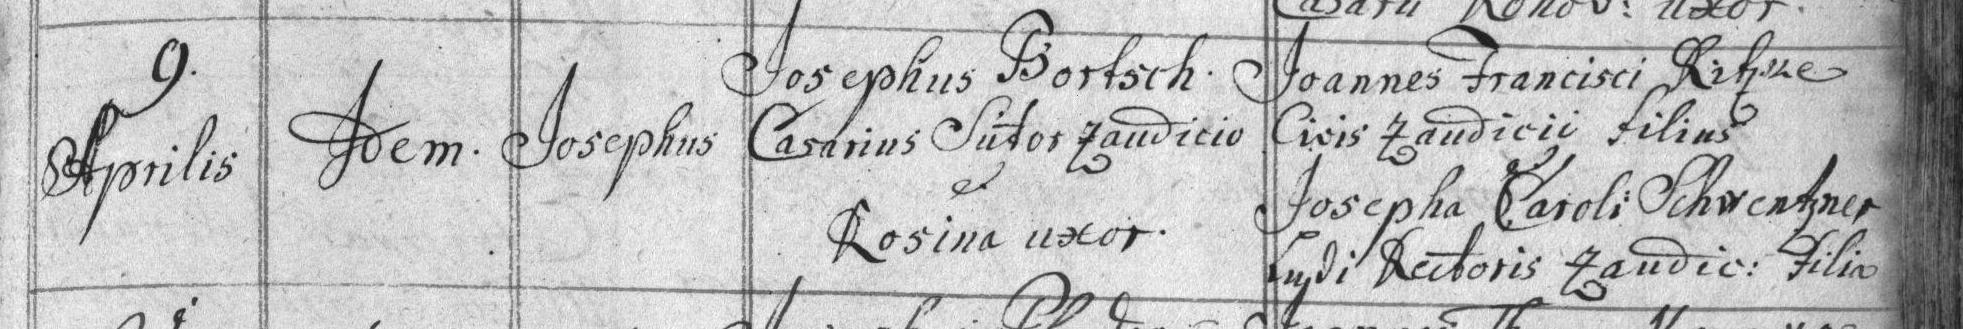 uxor.
9.
Aprilis
Idem.
Josephus
Josephus Bortsch.
Casarius Sutor Zaudicio
et
Rosina uxor.
Joannes Francisci
Civis Zaudicii Filius
Josepha Caroli Schwentzner
Ludi Rectoris Zaudic: Filia